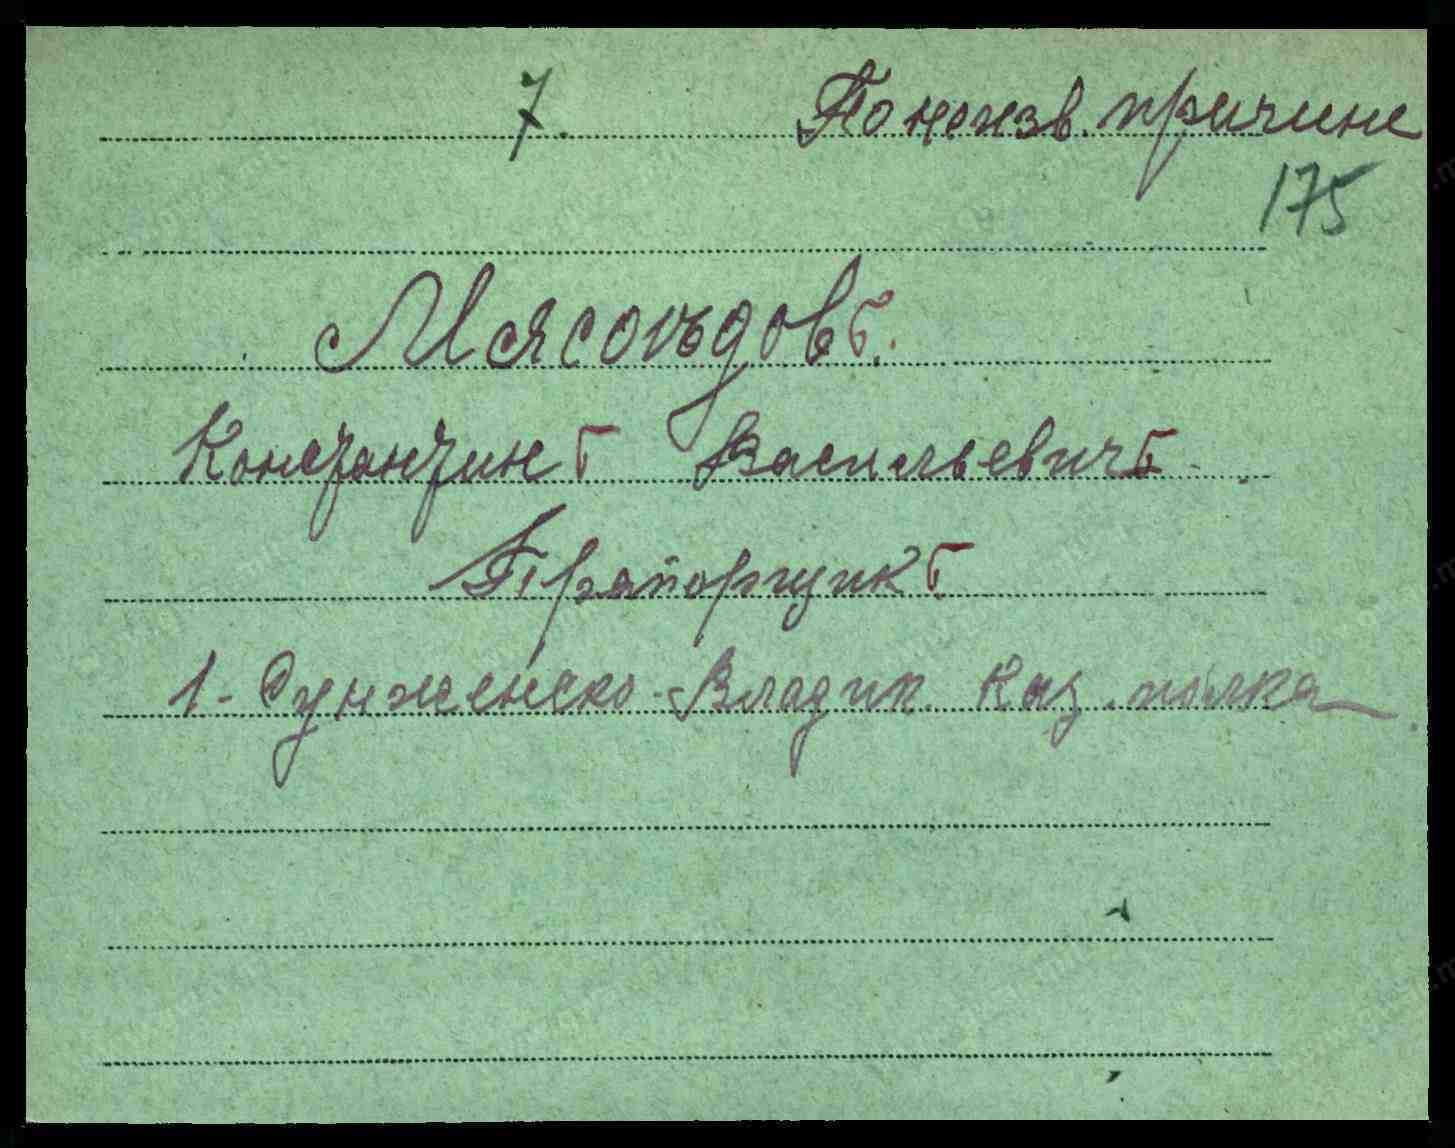 7. По неизв. причине
175
Мясоѣдовъ.
Константинъ Васильевичъ
Прапорщикъ
1-Сунженско-Владик. Каз. полка